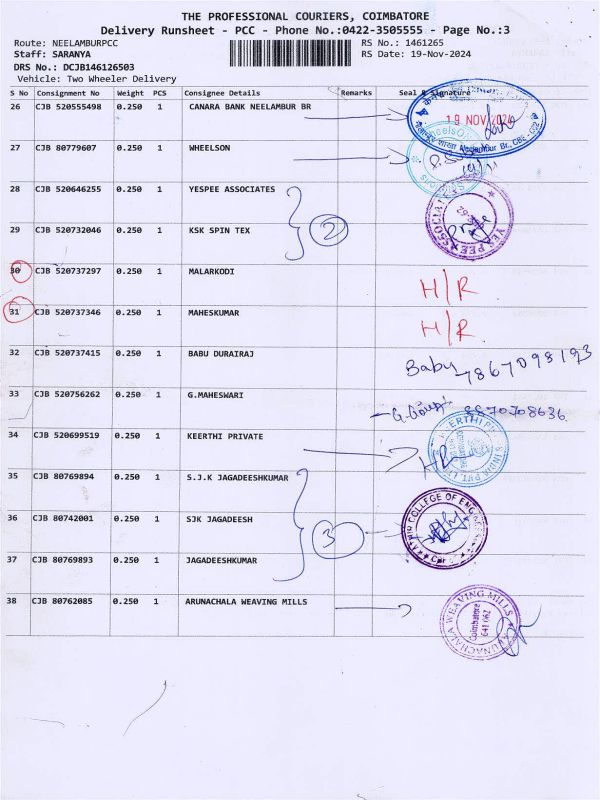 THE PROFESSIONAL COURIERS, COIMBATORE
Delivery Runsheet - PCC - Phone No.:0422-3505555 - Page No.:3
Route: NEELAMBURPCC RS No.: 1461265
Staff: SARANYA RS Date: 19-Nov-2024
DRS No.: DCJB146126503
Vehicle: Two Wheeler Delivery
S No Consignment No Weight PCS Consignee Details Remarks Seal & Signature
26 CJB 520555498 0.250 1 CANARA BANK NEELAMBUR BR
19 NOV 2024
Neelambur Br, CBE
27 CJB 80779607 0.250 1 WHEELSON
28 CJB 520646255 0.250 1 YESPEE ASSOCIATES
YES PEE ASSOCIATES
29 CJB 520732046 0.250 1 KSK SPIN TEX
2
30 CJB 520737297 0.250 1 MALARKODI H/R
31 CJB 520737346 0.250 1 MAHESKUMAR H/R
32 CJB 520737415 0.250 1 BABU DURAIRAJ Baby 7867098193
33 CJB 520756262 0.250 1 G.MAHESWARI 8870708636
34 CJB 520699519 0.250 1 KEERTHI PRIVATE
35 CJB 80769894 0.250 1 S.J.K JAGADEESHKUMAR
36 CJB 80742001 0.250 1 SJK JAGADEESH
3
COLLEGE OF
37 CJB 80769893 0.250 1 JAGADEESHKUMAR
38 CJB 80762085 0.250 1 ARUNACHALA WEAVING MILLS
ARUNACHALA WEAVING MILLS
Coimbatore
641 062